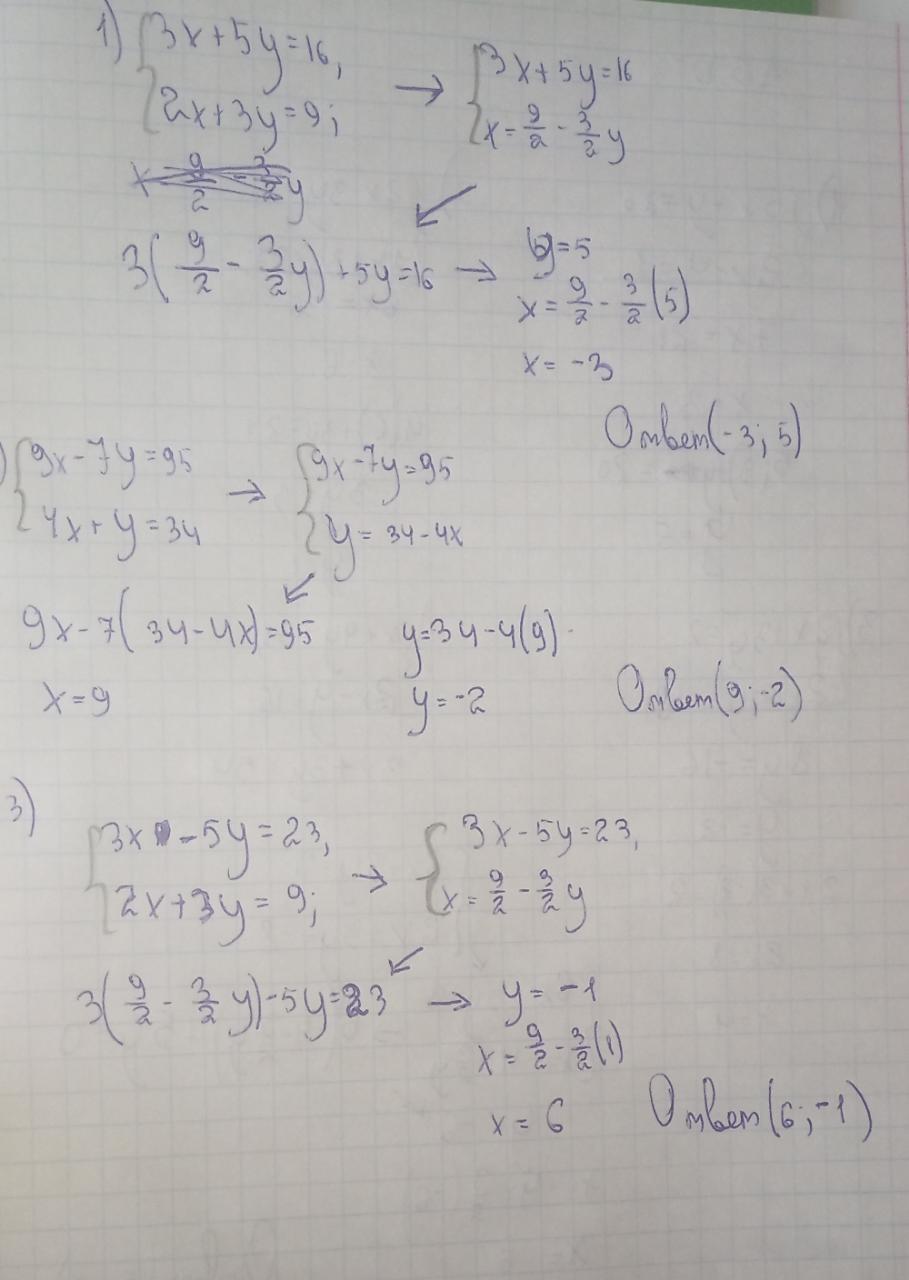 1) {3x+5y=16, → {3x+5y=16
2x+3y=9; x=9/2-3/2y
3(9/2-3/2y)+5y=16 → y=5
x=9/2-3/2(5)
x=-3
Ответ(-3; 5)
) {9x-7y=95 → {9x-7y=95
4x+y=34 y=34-4x
9x-7(34-4x)=95 y=34-4(9)
x=9 y=-2 Ответ(9;-2)
3)
{3x-5y=23, → {3x-5y=23,
2x+3y=9; x=9/2-3/2y
3(9/2-3/2y)-5y=23 → y=-1
x=9/2-3/2(1)
x=6 Ответ(6;-1)